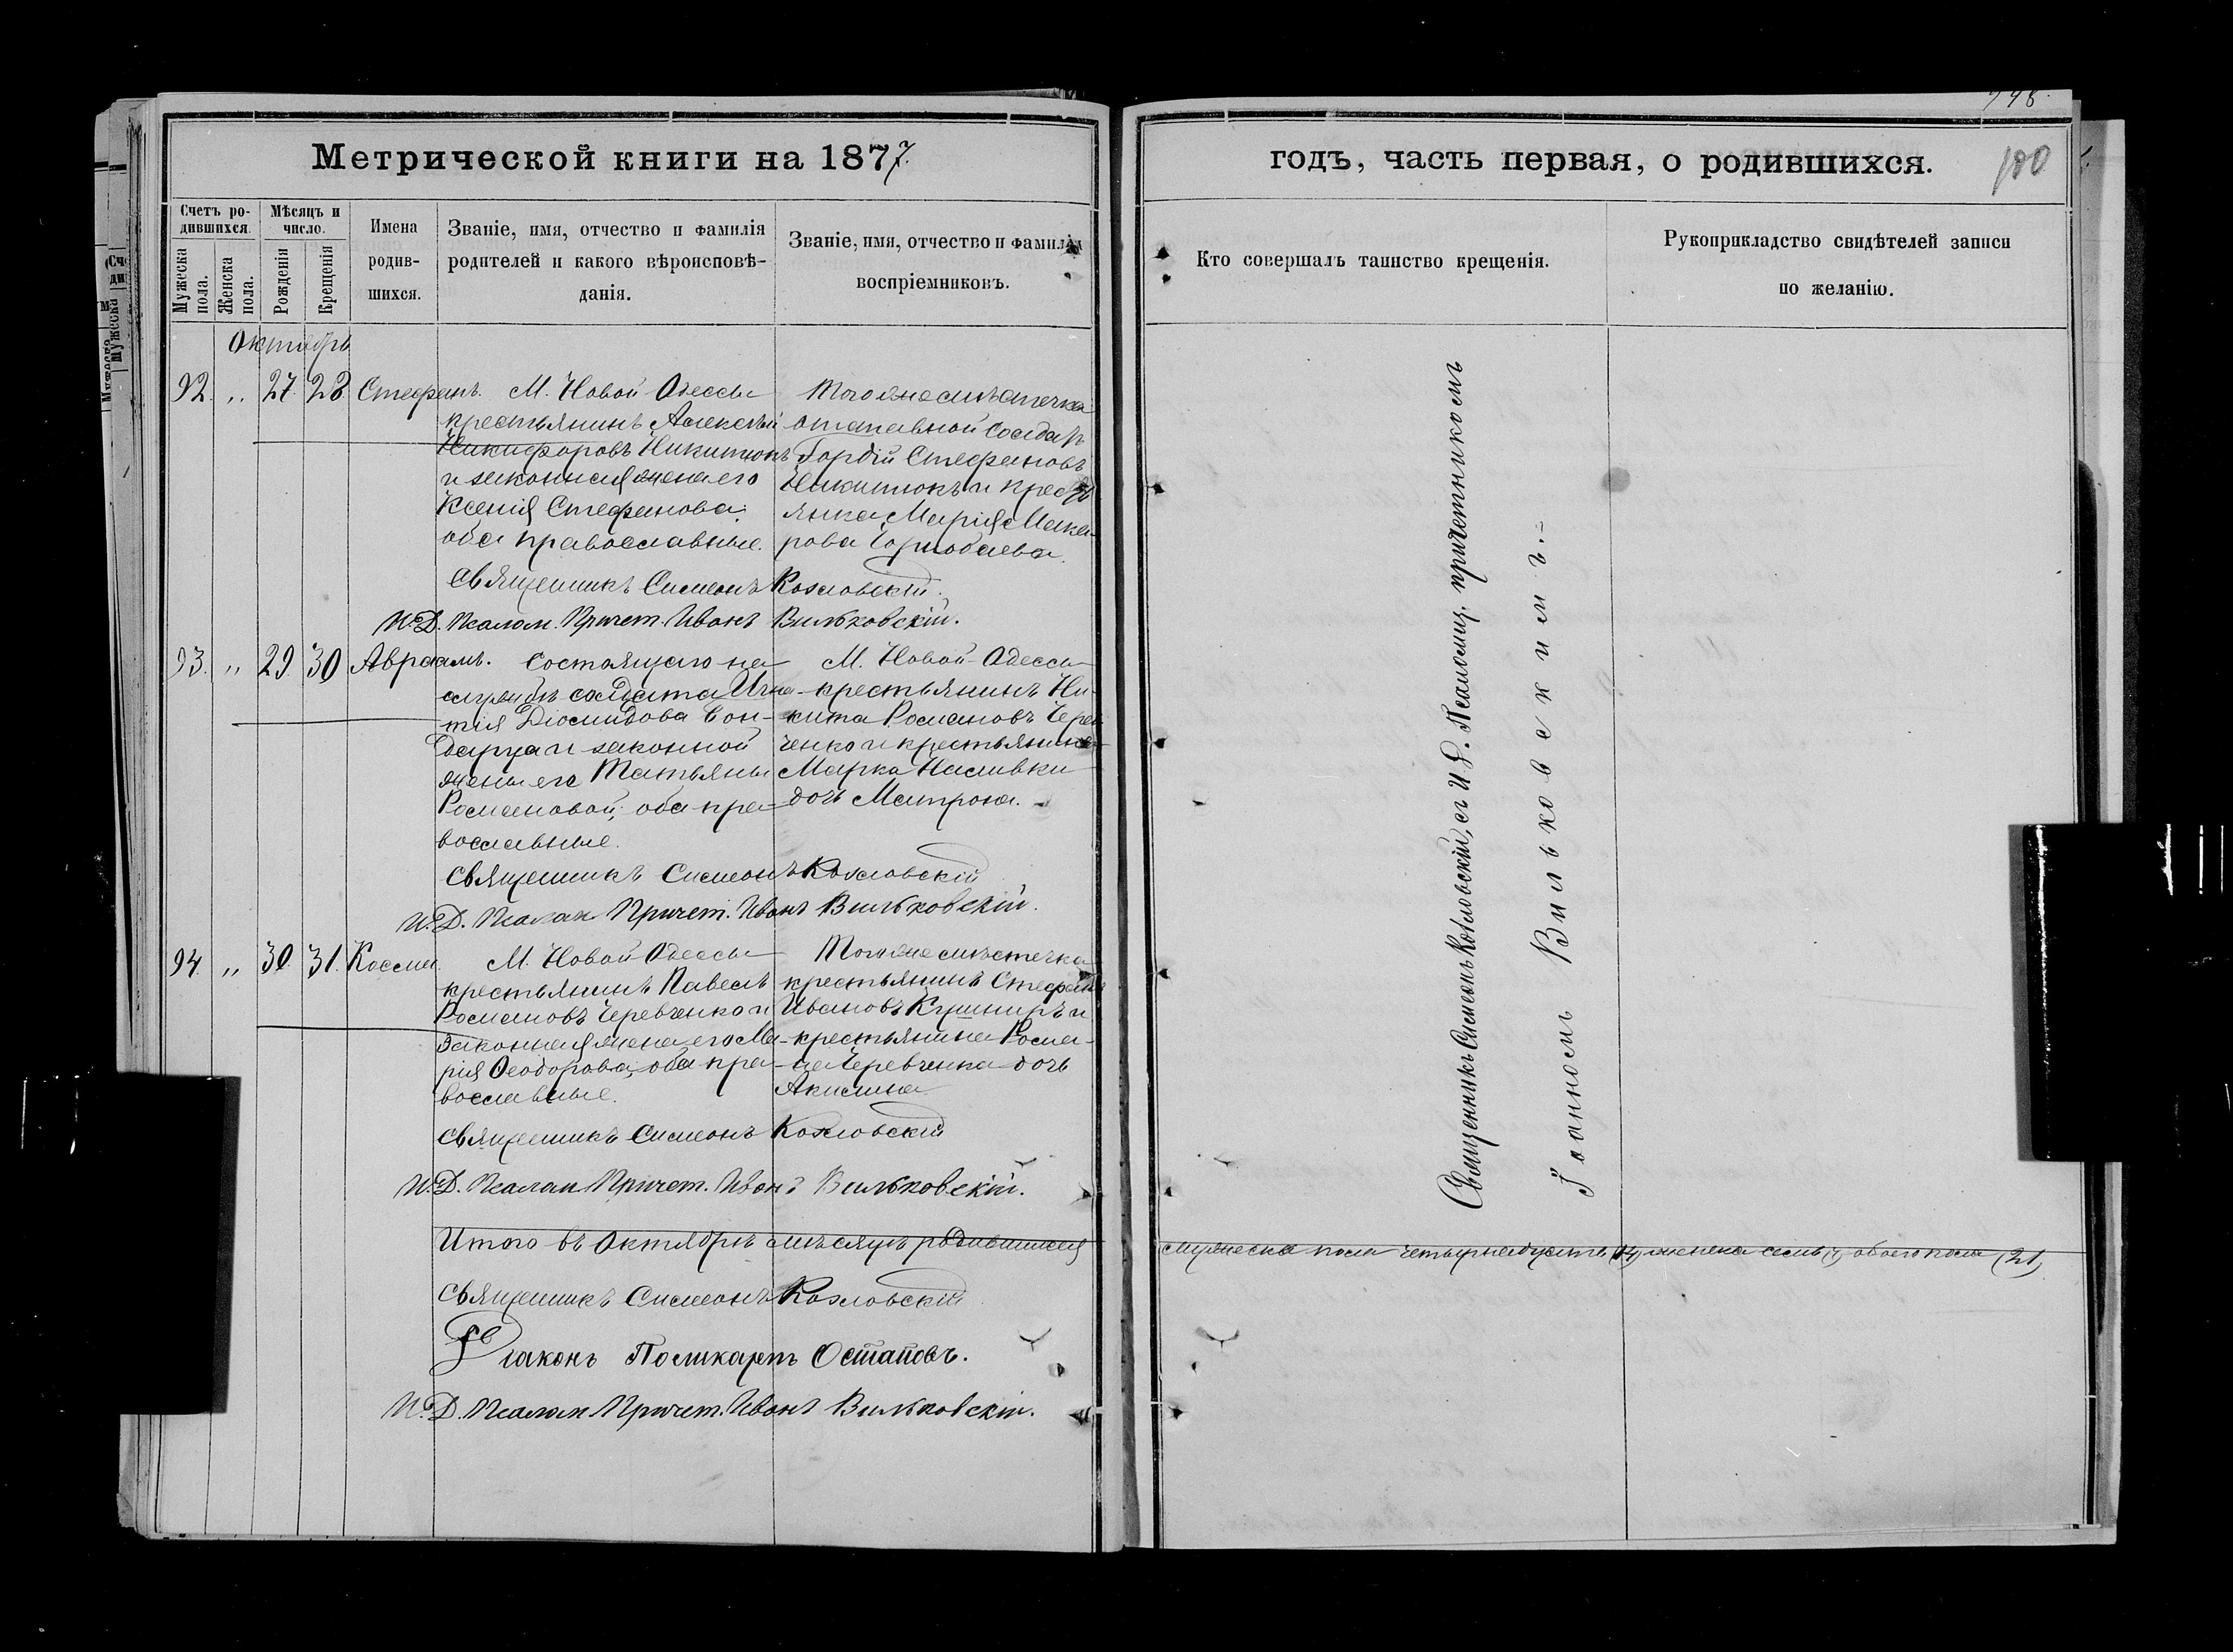 Метрической книги на 1877.
Счетъ ро-
дившихся.
Мѣсяцъ и
число.
Мужеска
пола.
Женска
пола.
Рожденія
Крещенія
Имена
родив-
шихся.
Званіе, имя, отчество и фамилія
родителей и какого вѣроисповѣ-
данія.
Званіе, имя, отчество и фамилія
воспріемниковъ.
Октябрь
92. „ 27. 28. Стефанъ.
М. Новой Одессы
крестьянинъ Алексѣй
Никифоровъ Никитюкъ
и законная жена его
Ксенія Стефанова;
оба православные.
Того же мѣстечка
отставной солдатъ
Гордій Стефановъ
Никитюкъ и кресть
янка Марія Мака
рова
Священникъ Симеонъ Козловскій.
И.Д. Псалом. Причет. Иванъ Вильковскій.
93. „ 29. 30. Авраамъ.
Состоящаго на
службѣ солдата Игна-
тія Діомидова Бон-
даря и законной
жены его Татьяны
Романовой; оба пра-
вославные.
М. Новой-Одессы
крестьянинъ Ни-
кита Романовъ Черев
ченко и крестьянина
Марка Наливки
дочь Матрона.
Священникъ Симеонъ Козловскій
И.Д. Псалом Причет. Иванъ Вильковскій.
94. „ 30. 31. Косма.
М. Новой Одессы
крестьянинъ Павелъ
Романовъ Черевченко и
законная жена его Ма-
рія Ѳеодорова; оба пра-
вославные.
Того же мѣстечка
крестьянинъ Стефанъ
Ивановъ Кушниръ и
крестьянина Рома-
на Черевченка дочь
Акилина
Священникъ Симеонъ Козловскій
И.Д. Псалом Причет. Иванъ Вильковскій.
Итого въ Октябрѣ мѣсяцѣ родившихся
Священникъ Симеонъ Козловскій
Діаконъ Поликарпъ Остаповъ.
И.Д. Псалом Причет. Иванъ Вильковскій.
годъ, часть первая, о родившихся.
180
Кто совершалъ таинство крещенія.
Рукоприкладство свидѣтелей записи
по желанію.
Священникъ Симеонъ Козловскій, съ И. Д. Псаломщ. причетникомъ
Іоанномъ Вильковскимъ.
мужеска пола четырнадцать (14) женска семь (7) обоего пола (21)